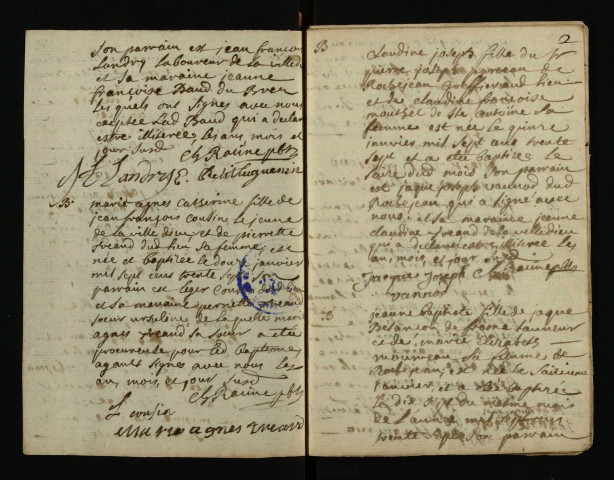 son parrain est jean francois
Landry Laboureur de la ville
et sa maraine jeanne
francoise Baud du
les quels ont signes avec nous
exceptee Lad Baud qui a declare
estre illiteree les ans mois et
jour susd
Ch Raine pbt
Landry
B
marie agnes catherine fille de
jean françois cousin Le jeune
de la ville dieu et de pierrette
dud lieu sa femme est
née et baptisee le douze janvier
mil sept cens trente sept son
parrain est leger cousin dud lieu
et sa maraine pierrette
soeur ursuline de la quelle marie
agnes sa soeur a etée
procureuse pour led baptesme
ayants signes avec nous les
an, mois, et jour susd
Ch Raine pbt
L cousin
Marie agnes
2
B
claudine joseph fille du Sr
pierre joseph de
Rochejean lieu
et de claudine francoise
de Ste Antoine sa
femme est née le quinze
janvier mil sept cens trente
sept et a etée baptisee le
seize dud mois son parrain
est jaque joseph vannod dud
Rochejean qui a signe avec
nous et sa maraine jeanne
claudine de la ville dieu
qui a declaré estre illiteree les
an, mois, et jour susd
Raine pbt
Jacque Joseph
vannod
B
jeanne baptiste fille de jaque
Besancon de
et de marie Elizabeth
sa femme de
Rochejean est née le seizieme
janvier et a etée baptisée
Le dix sept du mesme mois
de l'année mil sept cens
trente sept son parrain